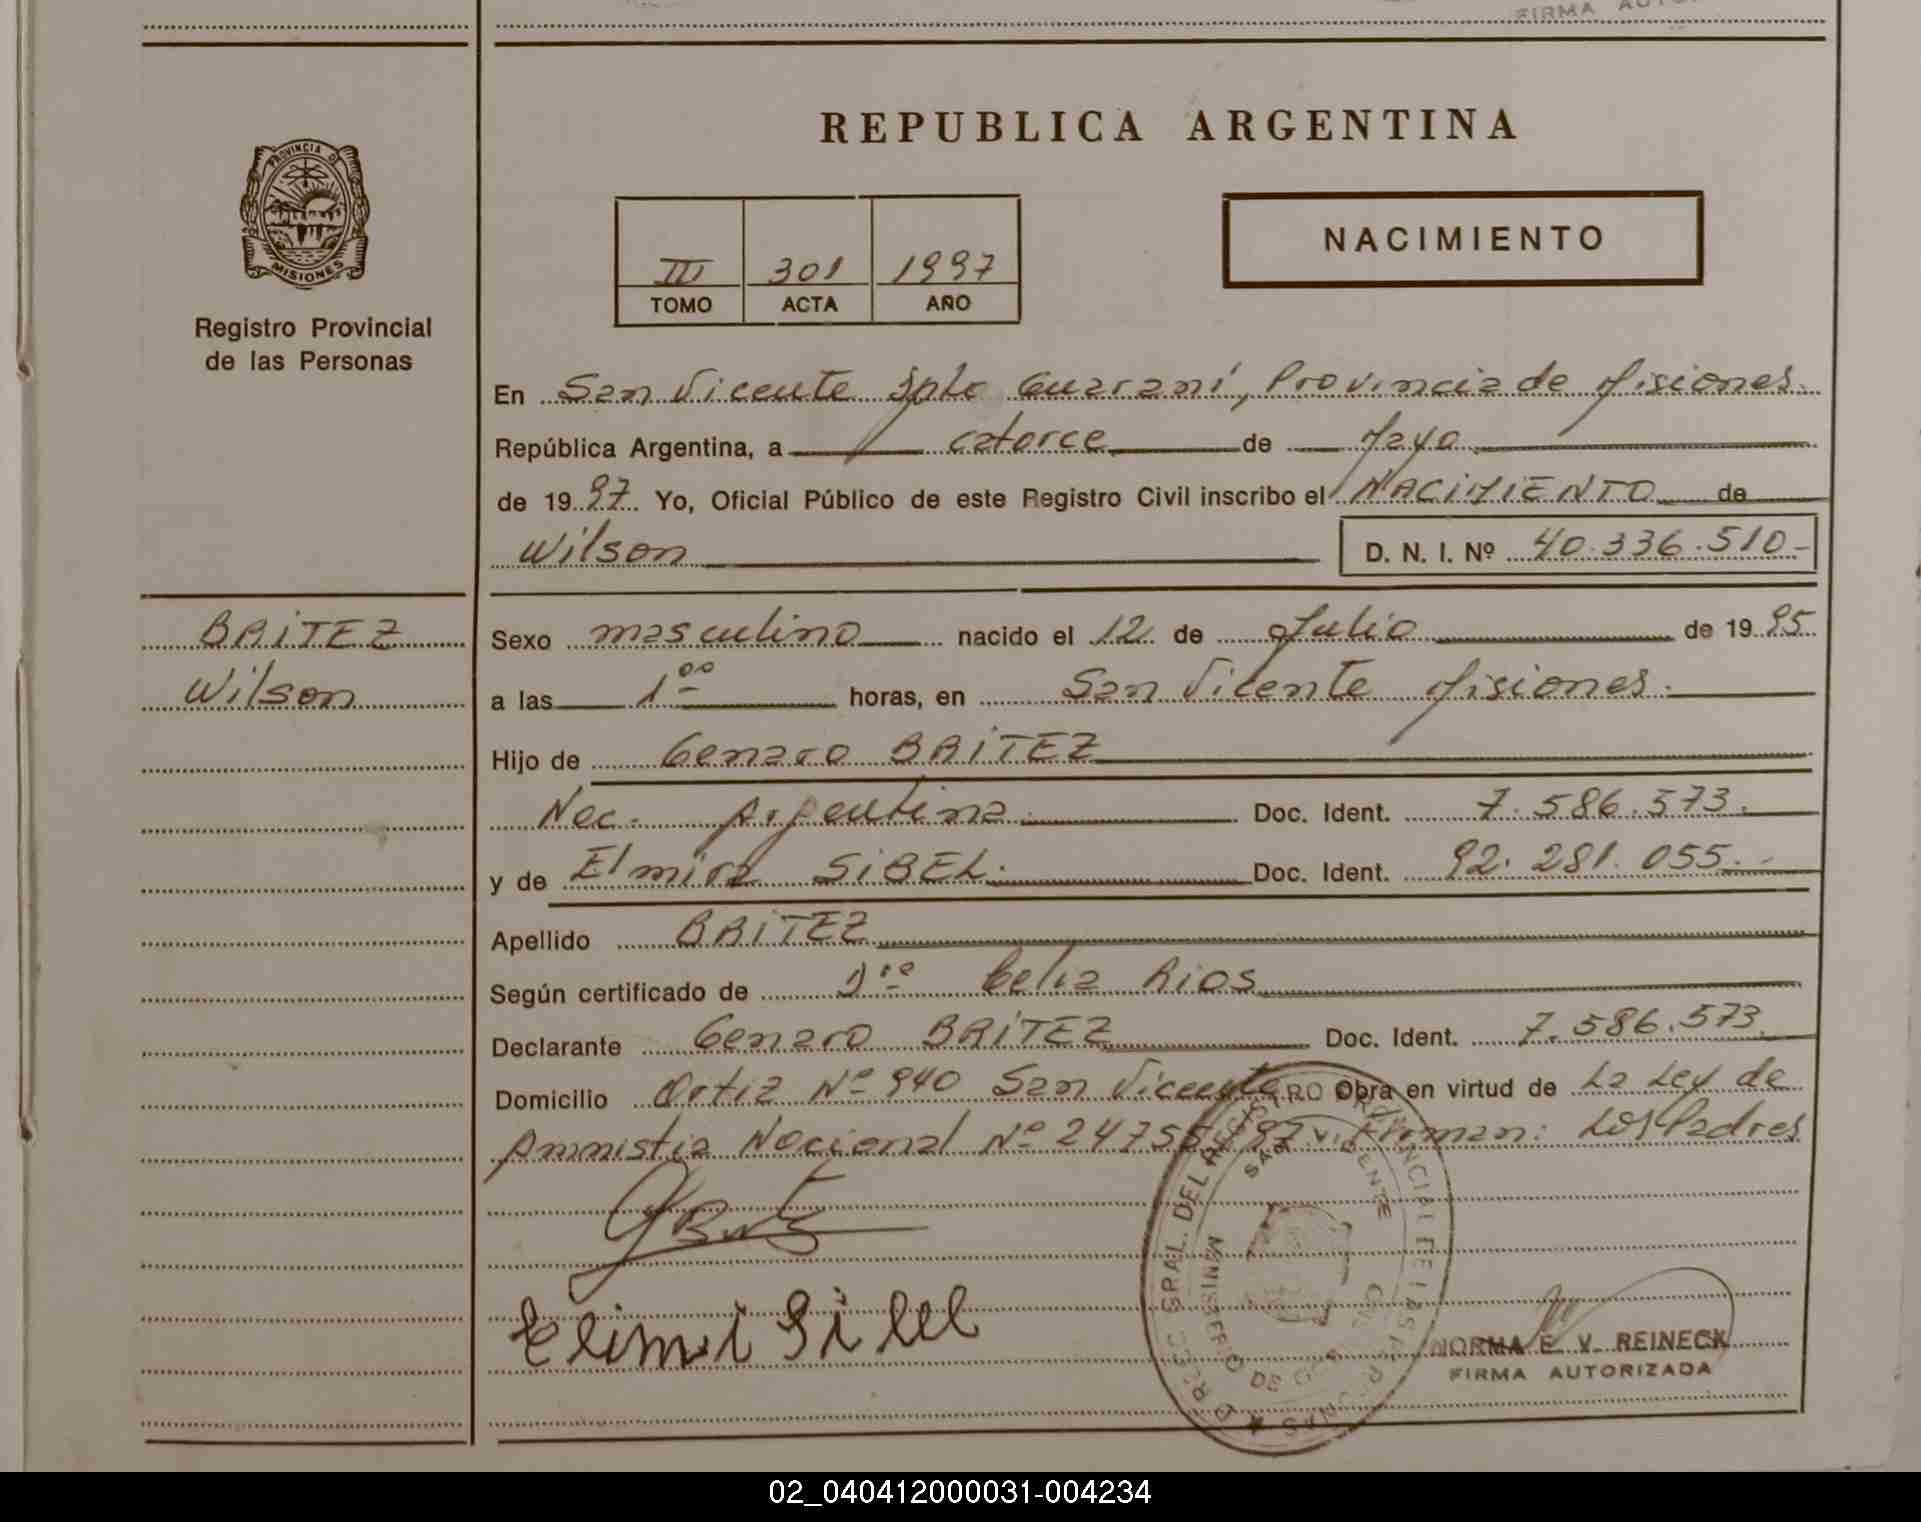 FIRMA AUTO
REPUBLICA ARGENTINA
PROVINCIA D
MISIONES
Registro Provincial
de las Personas
III 301 1997
TOMO ACTA AÑO
NACIMIENTO
En San Vicente Dpto Guaraní, Provincia de Misiones.
República Argentina, a catorce de Mayo
de 1997 Yo, Oficial Público de este Registro Civil inscribo el NACIMIENTO de
Wilson D. N. I. Nº 40.336.510-
BRITEZ
Wilson
Sexo masculino nacido el 12 de Julio de 1995
a las 1⁰⁰ horas, en San Vicente Misiones.
Hijo de Genaro BRITEZ
Nac. Argentina Doc. Ident. 7.586.573.
y de Elmira SIBEL. Doc. Ident. 92.281.055.-
Apellido BRITEZ
Según certificado de Celia Rios
Declarante Genaro BRITEZ Doc. Ident. 7.586.573
Domicilio Ortiz Nº 940 San Vicente Obra en virtud de La Ley de
Amnistia Nacional Nº 24755/97 Firman: Los Padres
Elimi Sibel
DIREC. GRAL. DEL REGISTRO PROVINCIAL DE LAS PERSONAS
SAN VICENTE
MINISTERIO DE
NORMA E. V. REINECK
FIRMA AUTORIZADA
02_040412000031-004234